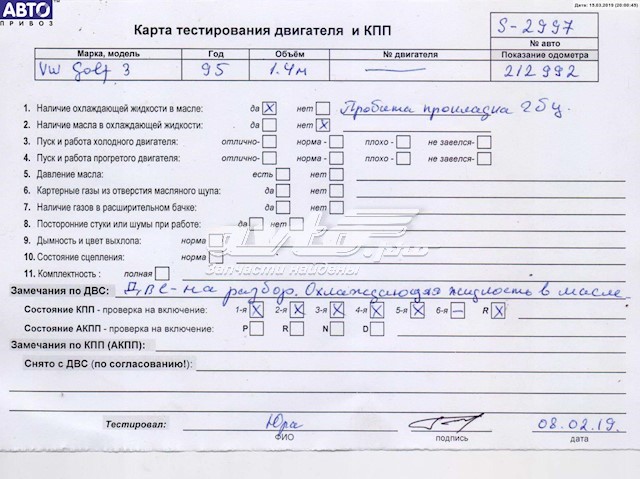 Дата: 19.03.2019 (20:00:49)
АВТО
ПРИВОЗ
Карта тестирования двигателя и КПП
S-2997
№ авто
Марка, модель Год Объём № двигателя Показание одометра
VW Golf 3 95 1.4м — 212992
1. Наличие охлаждающей жидкости в масле: да X нет Пробита прокладка гбц.
2. Наличие масла в охлаждающей жидкости: да нет X
3. Пуск и работа холодного двигателя: отлично- норма - плохо - не завелся-
4. Пуск и работа прогретого двигателя: отлично- норма - плохо - не завелся-
5. Давление масла: есть нет
6. Картерные газы из отверстия масляного щупа: да нет
7. Наличие газов в расширительном бачке: да нет
8. Посторонние стуки или шумы при работе: да нет
9. Дымность и цвет выхлопа: норма
10. Состояние сцепления: норма
11. Комплектность : полная
запчасти найдены
Замечания по ДВС: ДВС - на разбор. Охлаждающая жидкость в масле
Состояние КПП - проверка на включение: 1-я X 2-я X 3-я X 4-я X 5-я X 6-я — R X
Состояние АКПП - проверка на включение: P R N D
Замечания по КПП (АКПП):
Снято с ДВС (по согласованию!):
Тестировал: Юра 08.02.19.
ФИО подпись дата